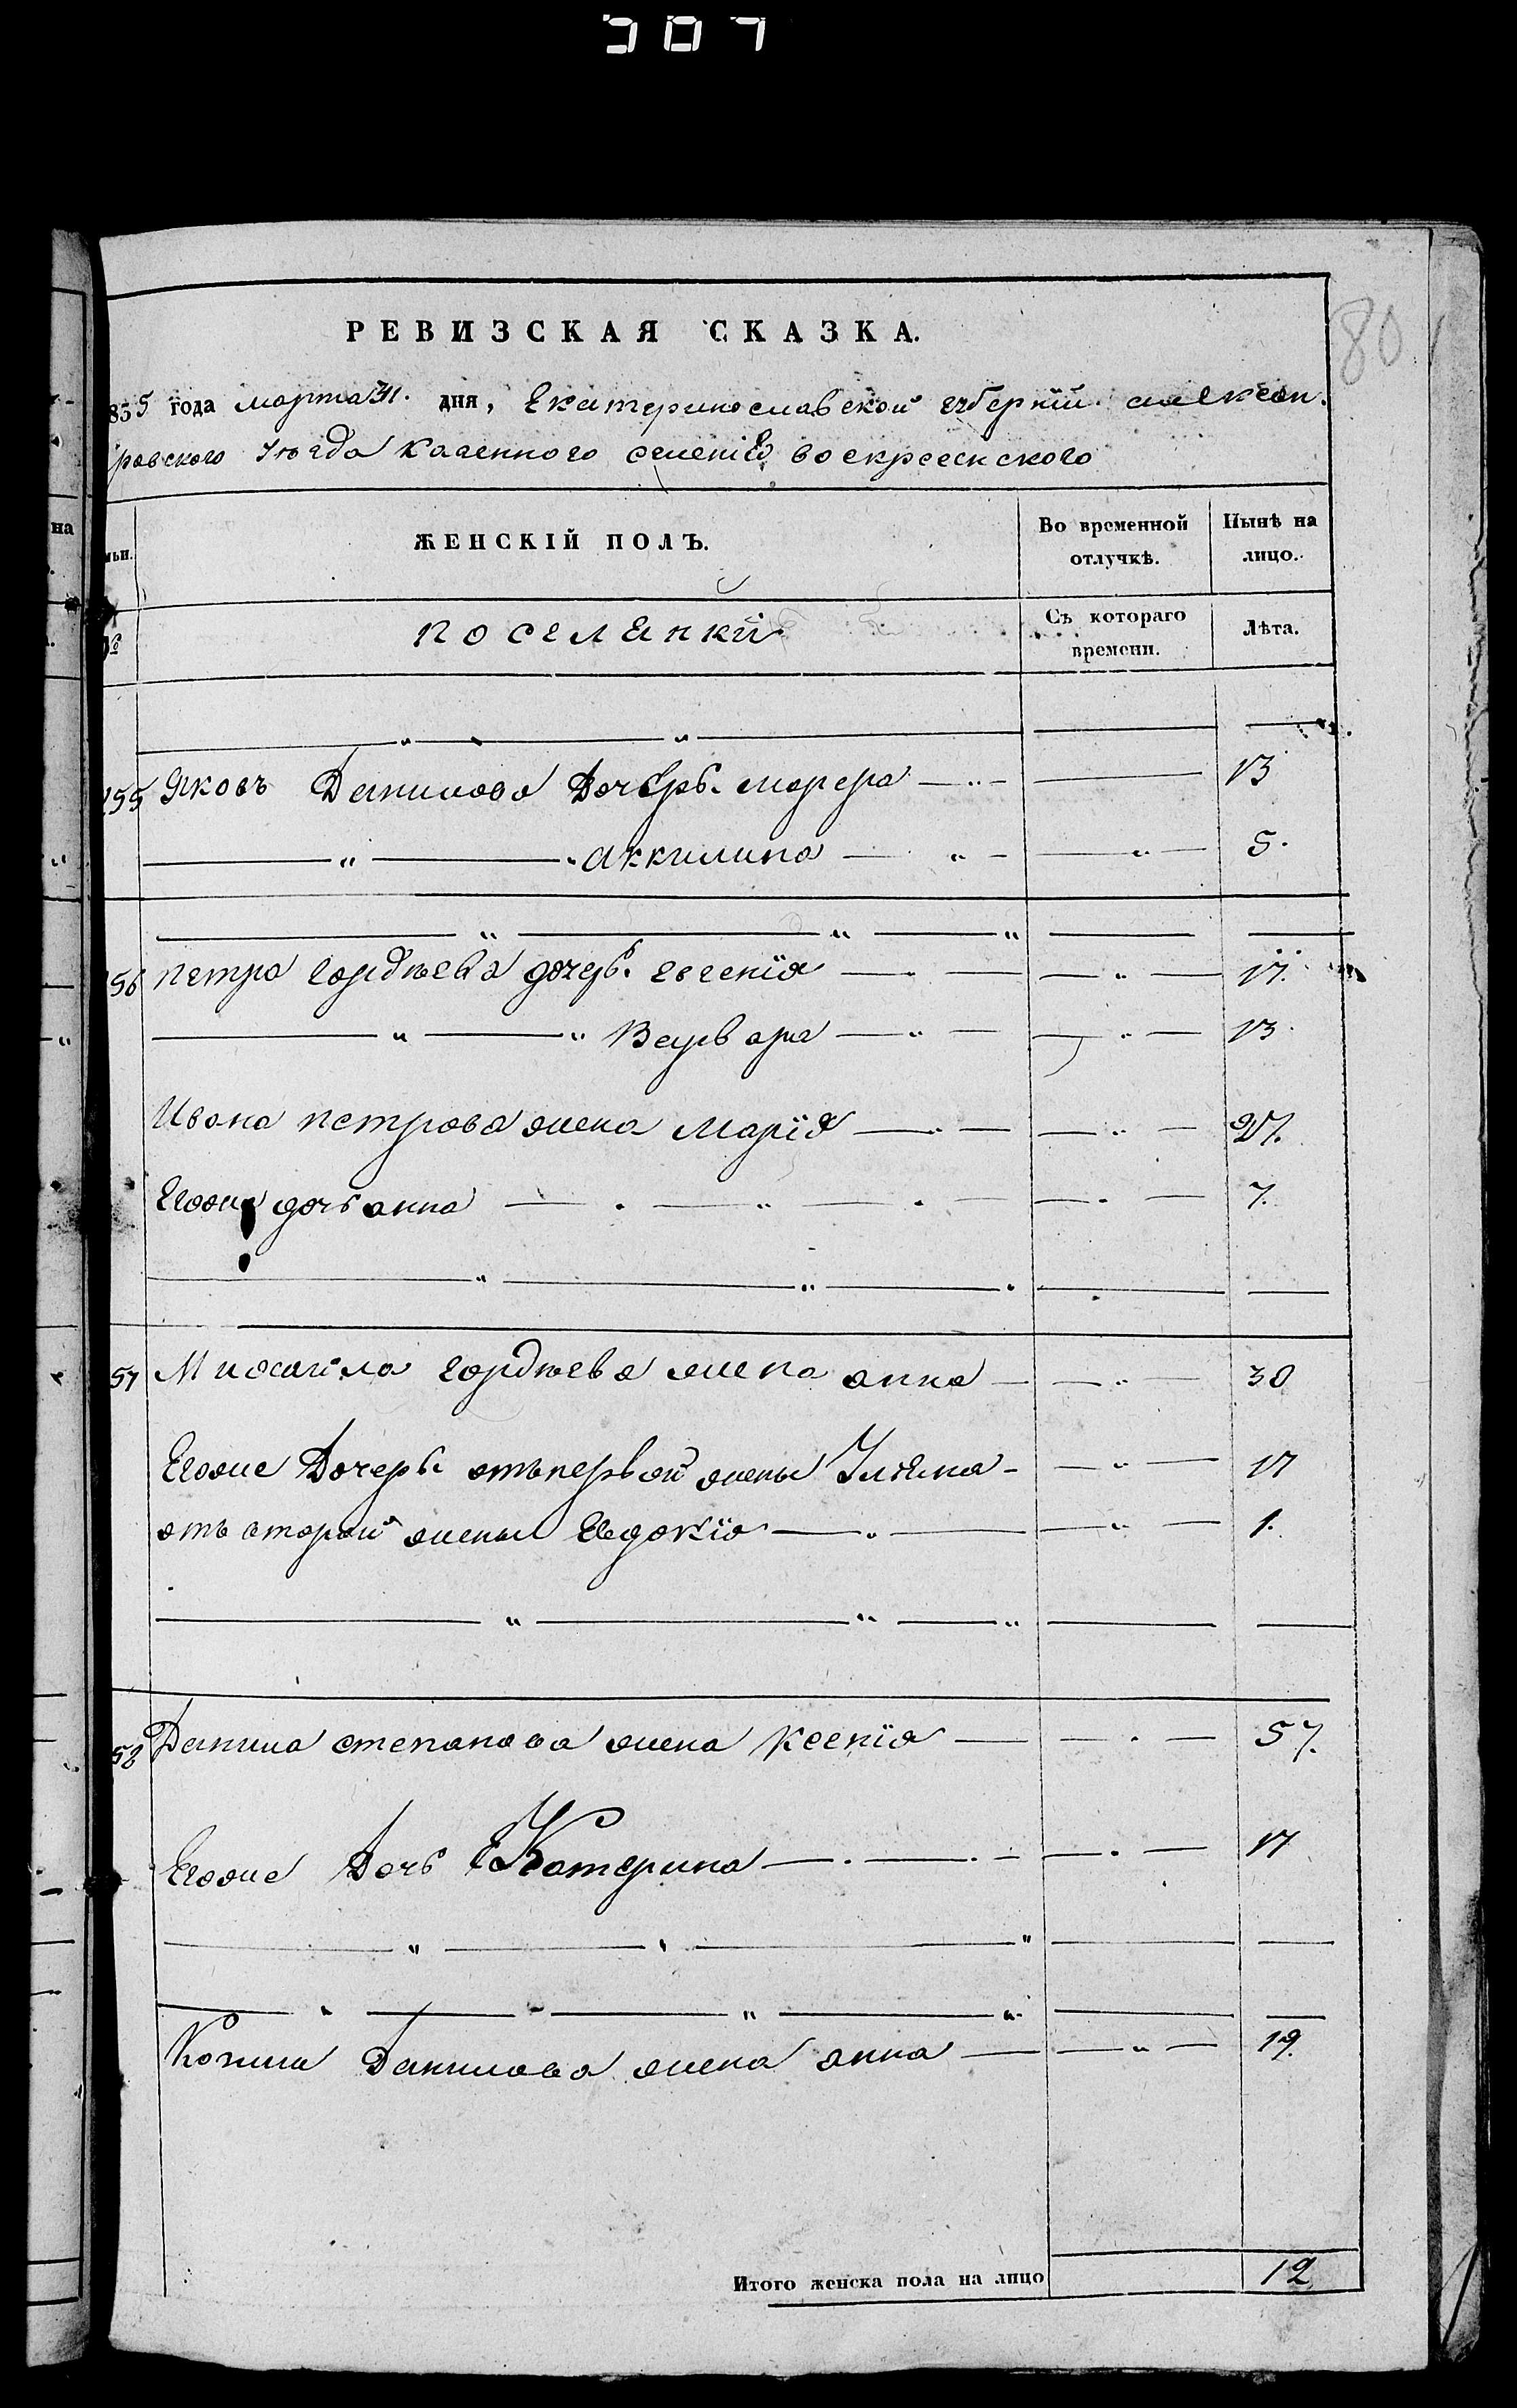 307
80
РЕВИЗСКАЯ СКАЗКА.
835 года марта 31. дня, Екатеринославской губерніи. алексан.
ровского уезда казенного селенія воскресенского
на
мьи.
ЖЕНСКІЙ ПОЛЪ.
Во временной отлучкѣ.
Нынѣ на лицо.
№
поселянки
Съ котораго времени.
Лѣта.
155 Яковъ Данилова Дочерь. марфра 13
аккилина 5.
56 петра Гордѣева дочерь. евгенія 17.
Варвара 13.
Ивана петрова жена Марія 27.
Егоже дочь анна 7.
57 Михаила гордѣева жена анна 30
Егоже Дочерь отъ первой жены Ульяна 17
отъ второй жены Евдокія 1.
58 Данила степанова жена Ксенія 57.
Егоже Дочь Катерина 17
Козма Данилова жена анна 19.
Итого женска пола на лицо 12